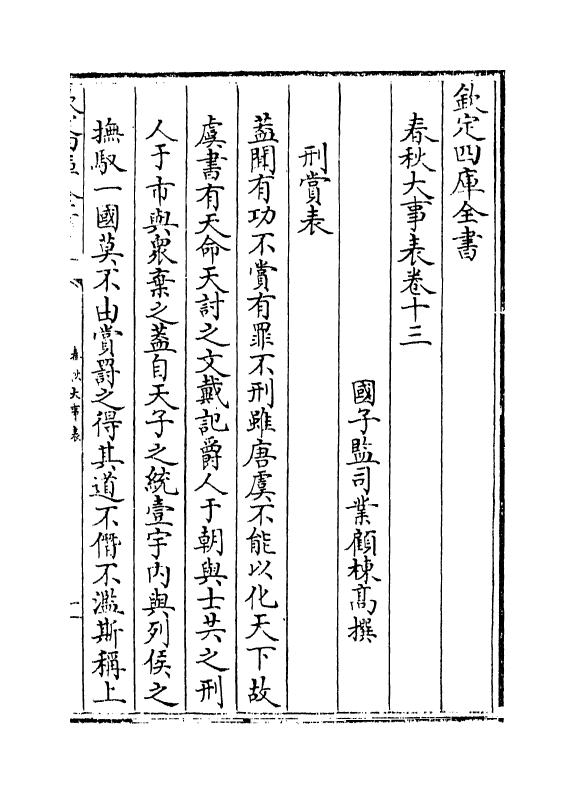 欽定四庫全書
春秋大事表卷十三
國子監司業顧棟高撰
刑賞表
蓋聞有功不賞有罪不刑雖唐虞不能以化天下故
虞書有天命天討之文戴記爵人于朝與士共之刑
人于市與眾棄之蓋自天子之統壹宇内與列侯之
撫馭一國莫不由賞罰之得其道不僭不濫斯稱上
春秋大事表